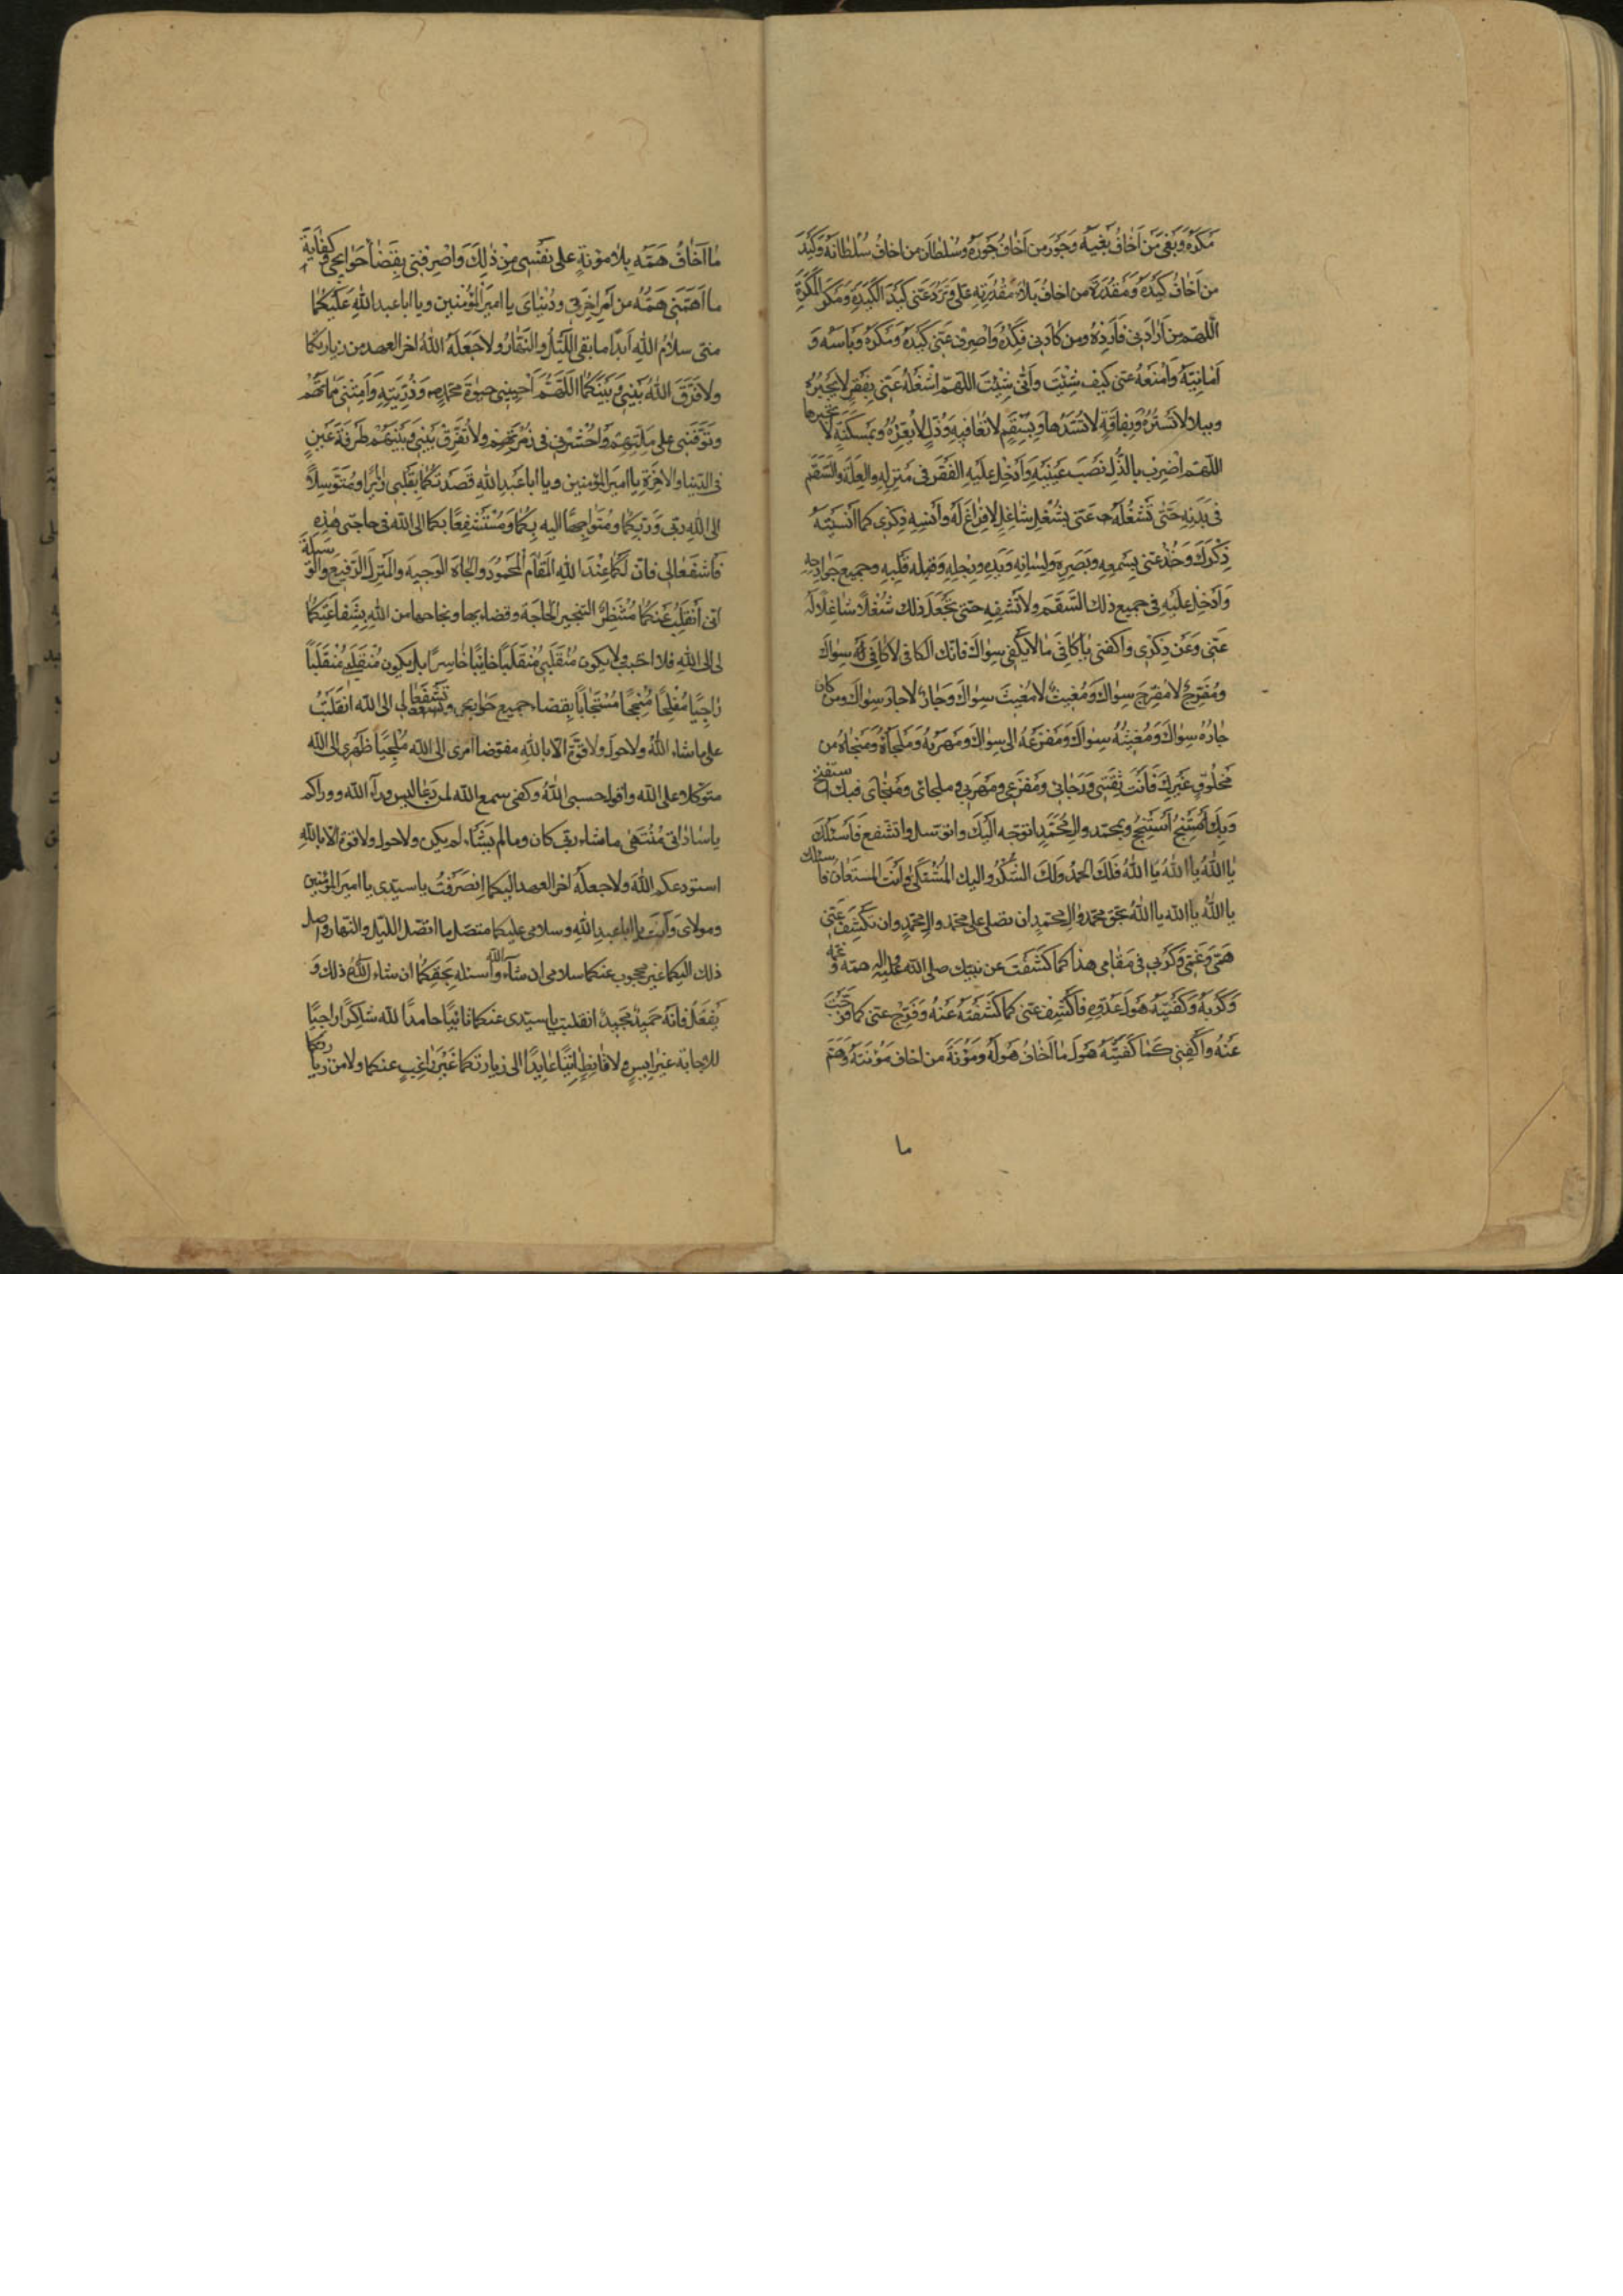 مَكْرَهُ وَبَغْىَ مَنْ اَخٰافُ بَغْيَهُ وَجَوْرَ من اَخٰافُ جَوْرَهُ وَسُلْطٰانَ من اخافُ سُلْطٰانَهُ وَكَيْدَ
من اَخٰافُ كَيْدَهُ وَمَقْدُرَةَ من اخافُ بَلاءَ مَقْدُرَتِهِ عَلَىَّ وَتَرُدَّ عَنّى كَيْدَ الْكَيَدَةِ وَمَكْرَ الْمَكَرَةِ
اَللّهمّ من اَرٰادَنى فَاَرِدْهُ ومن كٰادَنى فَكِدْهُ وَاصْرِفْ عَنّى كَيْدَهُ وَمَكْرَهُ وَبَاْسَهُ وَ
اَمٰانِيَّهُ وَامْنَعْهُ عنّى كيف شِئْتَ وَاَنّى شِئْتَ اللّهمّ اشْغَلْهُ عَنّى بِفَقْرٍ لا تَجْبُرُهُ
وببلاء لا تَسْتُرُهُ وَبِفاقَةٍ لا تَسُدّهٰا وَبِسُقْمٍ لا تُعٰافيهِ وَذُلٍّ لا تُعِزُّهُ وَبِمَسْكَنَةٍ لا تجبرها
اللّهمّ اضرب بالذّلِ نَصْبَ عَيْنَيْهِ وَاَدْخِلْ عَلَيْهِ الفَقْرَ فى مَنْزِلِهِ والعِلّةَ والسّقَم
فى بَدَنِهِ حَتّى تَشْغَلَهُ عَنّى بِشُغْلٍ شاغِلٍ لا فَرٰاغَ لَهُ وَاَنْسِهِ ذِكْرى كما اَنْسَيْتَهُ
ذِكْرَكَ وَخُذْ عنّى بِسَمْعِهِ وبَصَرِهِ وَلِسٰانِهِ وَيَدِهِ وَرِجْلِهِ وَقَلْبِهِ وجميع جَوٰارِحِهِ
وَاَدْخِلْ عَلَيْهِ فى جميع ذلك السَّقَمَ ولا تَشْفِهِ حتّى تَجْعَلَ ذلك شُغْلاً شٰاغِلاً لَهُ
عَنّى وَعَنْ ذِكْرى واكفنى يا كٰافِىَ مٰا لا يَكْفى سِوٰاكَ فانّك الكافى لا كٰافِىَ سِوٰاكَ
ومُفَرِّجٌ لا مُفَرِّجَ سِوٰاكَ وَمُغيثٌ لا مُغيثَ سِوٰاكَ وَجٰارٌ لا جارَ سِوٰاكَ ومن كان
جٰارُهُ سِوٰاكَ وَمُغيثُهُ سِوٰاكَ وَمَفْزَعُهُ الى سِوٰاكَ وَمَهْرَبُهُ وَمَلْجَاُهُ وَمَنْجٰاهُ من
مَخْلُوقٍ غَيْرِكَ فَاَنْتَ ثِقَتى وَرَجٰائى وَمَفْزَعى ومَهْرَبى وملجائى ومَنْجٰاىَ فبك استفتح
وَبِكَ اَسْتَنْجِحُ وبمحمّد والِ مُحَمّدٍ اتوجّه اليْكَ واتوسّل واتشفّع فَاَسْئَلُكَ
يٰا اَللهُ يا اَللهُ يٰا اَللهُ فَلَكَ الحمدُ وَلَكَ الشّكْرُ واليك الْمُشْتَكىٰ وَاَنْتَ المستعانُ فاسئلك
يا اللهُ يا الله يا اللهُ بحق محمّد والِ محمّدٍ ان تصلى على محمّد والِ محمّدٍ وان تَكْشِفَ عَنّى
هَمّى وَغَمّى وَكَرْبى فى مَقٰامى هذا كما كَشَفْتَ عن نبيّك صلى الله عليه واله همّه وغمّه
وَكَرْبَهُ وَكَفَيْتَهُ هَوْلَ عَدُوّهِ فَاكْشِفْ عنّى كما كَشَفْتَهُ عَنْهُ وَفَرِّجْ عنّى كما فَرَّجْتَ
عَنْهُ واكْفِنى كَمٰا كَفَيْتَهُ هَوْلَ مٰا اَخٰافُ هَوْلَهُ وَمَؤُنَةَ من اخاف مَؤُنَتَهُ وَهَمَّ
ما
مٰا اَخٰافُ هَمَّهُ بِلا مَؤُنَةٍ على نَفْسى مِنْ ذٰلِكَ وَاصْرِفْنى بِقَضٰاءِ حَوٰايِجى وَكِفٰايَةِ
ما اَهَمَّنى هَمُّهُ من اَمْرِ اخِرَتى ودُنْيٰاىَ يا اميرَ المُؤمنين ويا ابا عبد اللهِ عَلَيْكُمٰا
منّى سلامُ اللهِ اَبَداً ما بقى اللّيْلُ والنّهٰارُ ولا جَعَلَهُ اللهُ اخر العهد من زيارتكما
ولا فَرّقَ اللهُ بَيْنى وَبَيْنَكُمٰا اللّهُمَّ اَحْيِينى حيٰوةَ محمّدٍ وَذُرِّيَّتِهِ وَاَمِتْنى مَمٰاتَهُمْ
وتَوَفَّنى على مِلّتِهِمْ وَاحْشُرْنى فى زُمْرَتِهِم ولا تُفَرِّقْ بَيْنى وَبَيْنَهُمْ طَرْفَةَ عَيْنٍ
فى الدّنيا والاخِرَةِ يا اميرَ المؤمنين ويا ابا عَبْدِ اللهِ قَصَدْتُكُمٰا بِقَلْبى زٰائِراً ومُتَوَسِّلاً
الى اللهِ ربّى وَرَبِّكُمٰا ومُتَوَجِّهاً اليه بِكُمٰا وَمُسْتَشْفِعاً بكما الى الله فى حاجتى هٰذِهِ
فَاشْفَعٰا لى فانّ لَكُمٰا عِنْدَ اللهِ الْمَقٰامَ الْمَحْمُودَ والْجٰاهَ الوَجيهَ والْمَنْزِلَ الرَّفيعَ وَالْوَسيلَةَ
اِنّى اَنْقَلِبُ عَنْكُمٰا مُنْتَظِراً لتنجيز الحاجَةِ وقضاءِها ونجاحها من اللهِ بِشَفٰاعَتِكُمٰا
لى الى اللهِ فلا اخيب ولا يكون مُنْقَلَبى مُنْقَلَباً خائِباً خٰاسِراً بل يكون مُنْقَلَبى مُنْقَلَباً
رٰاجِياً مُفْلِحاً مُنْجِحاً مُسْتَجٰاباً بِقضاء جميع حَوٰايجى وتَشَفَّعٰا لى الى الله انْقَلَبْتُ
على ماشاء اللهُ ولا حولَ ولا قوّةَ الّا باللهِ مفوّضا امرى الى اللهِ مُلْجِئاً ظَهْرى الى الله
متوكّلا على الله واقول حسبى اللهُ وكفى سمع الله لمن دَعٰا ليس ورآء الله ووراكم
يا سٰادٰاتى مُنْتَهىٰ ما شاء ربّى كان وما لم يَشَاء لم يكن ولا حول ولا قوّة الّا باللهِ
استودعكم اللهَ ولا جعلَهُ اخرَ العهد اليكما اِنْصَرَفْتُ يا سيّدى يا اميرَ المؤمنين
ومولاىَ وَاَنْتَ يا ابا عبدِ اللهِ وسلامى عليكما متصل ما اتّصَل اللّيل والنّهار واصل
ذلك اليكما غير محجوب عنكما سلامى ان شآء الله وَاسئله بحَقِّكُمٰا ان شاء اللهُ ذلك وَ
يَفْعَلُ فانّه حَميدٌ مَجيدٌ انقلبت يا سيّدى عنكما تائِباً حامداً للهِ شٰاكِراً راجِياً
للاجابة غير ايِسٍ ولا قٰانِطٍ اٰئِباً عٰايِداً الى زيارتكما غَيْرَ رٰاغِبٍ عنكما ولا من زيارتكما